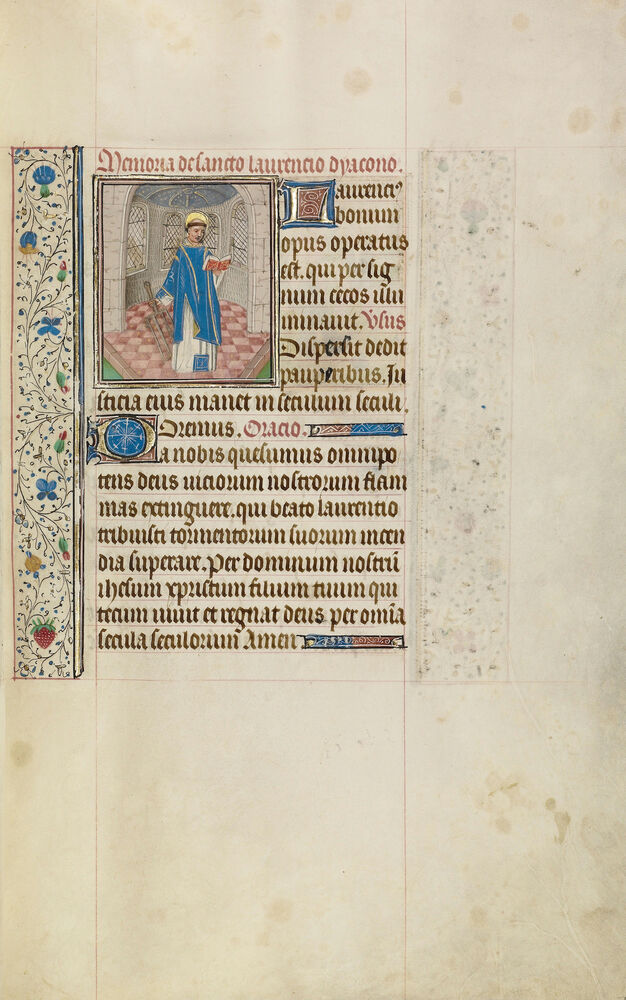 Memoria de sancto laurencio dyacono.
Laurenci⁹
bonum
opus operatus
est. qui per sig
num cecos illu
minauit. Vsus
Dispersit dedit
pauperibus. Ju
sticia eius manet in seculum seculi.
Oremus. Oracio.
Da nobis quesumus omnipo
tens deus uiciorum nostrorum flam
mas extinguere. qui beato laurentio
tribuisti tormentorum suorum incen
dia superare. Per dominum nostrū
ihesum xpristum filium tuum qui
tecum uiuit et regnat deus per om̄ia
secula seculorum Amen